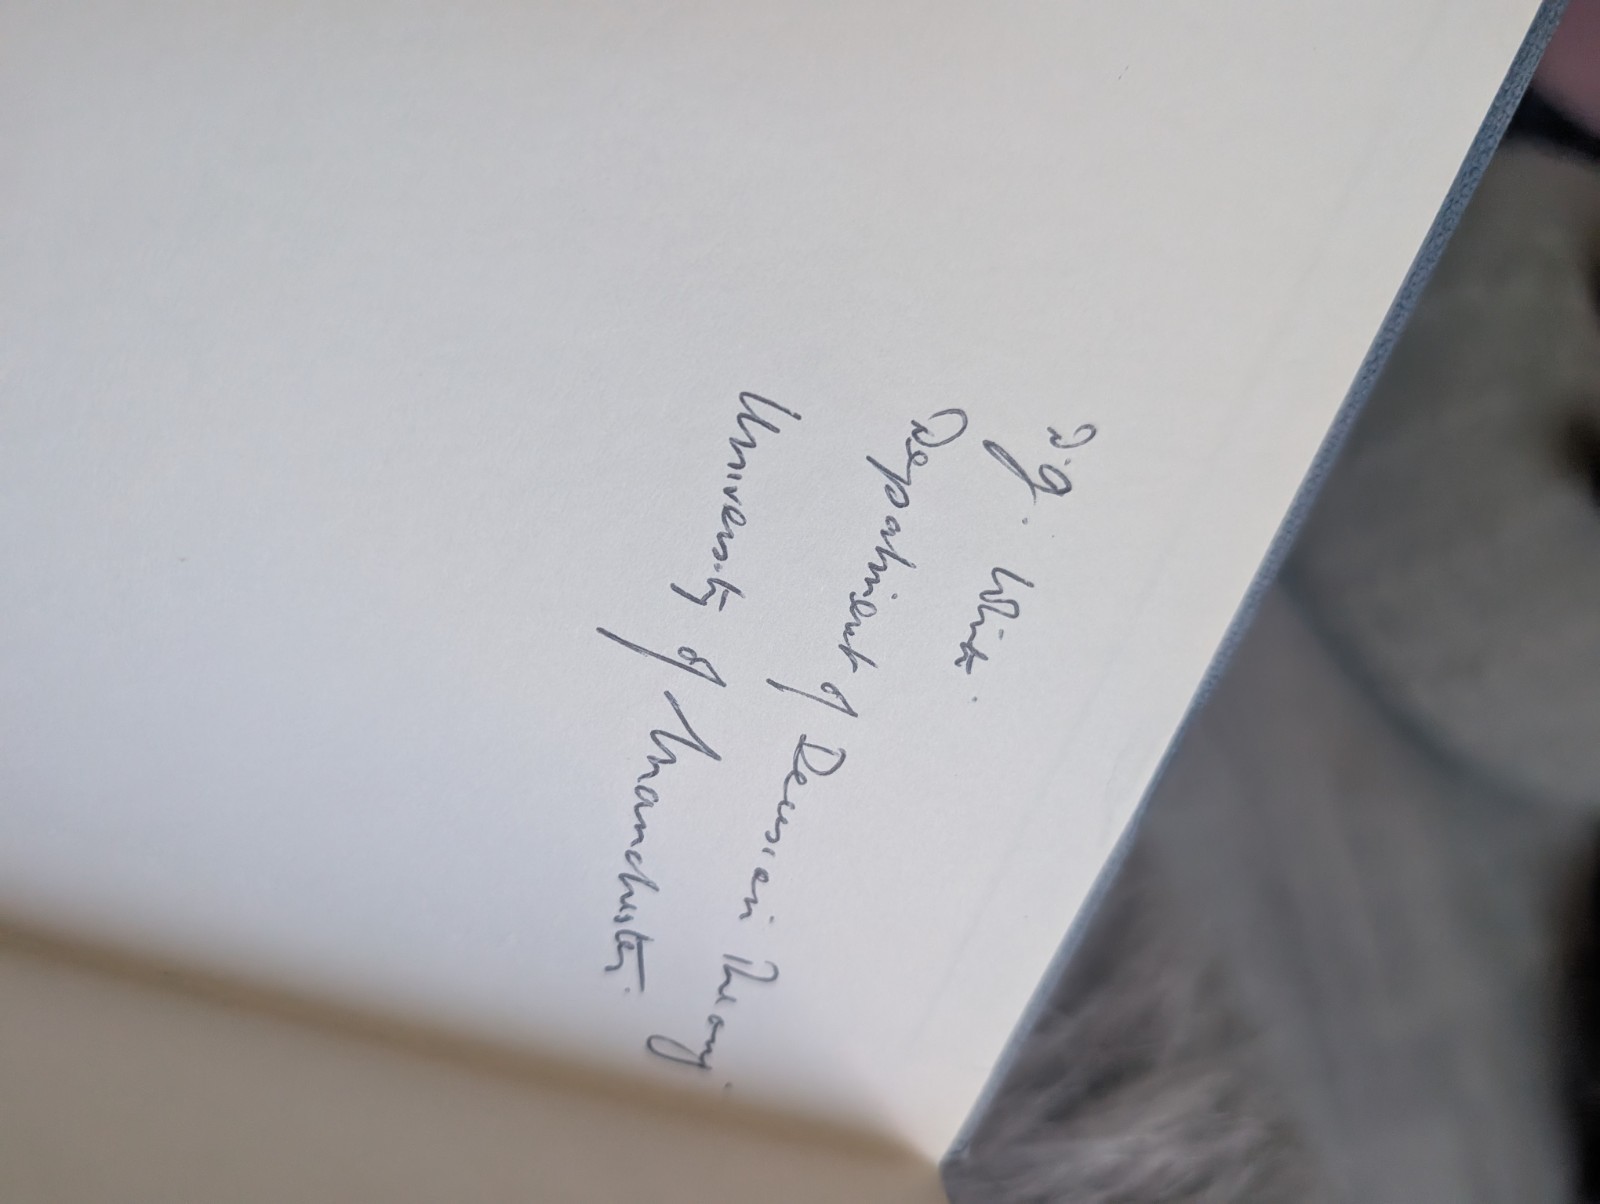 D.J. White.
Department of Decision Theory.
University of Manchester.